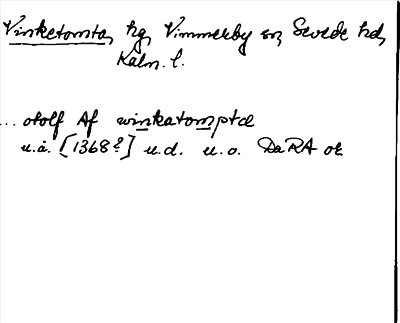 Vinketomta, hg, Vimmerby sn, Sevede hd,
Kalm. l.
... otolf Af winkatomptæ
u.å. [1368?] u.d. u.o. DaRA ok